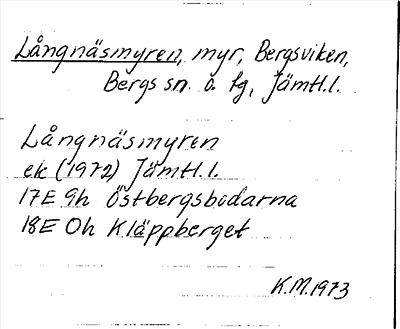 Långnäsmyren, myr, Bergsviken,
Bergs sn. o. fg, Jämtl.l.
Långnäsmyren
ek (1972) Jämtl.l.
17E 9h Östbergsbodarna
18E 0h Kläppberget
K.M.1973